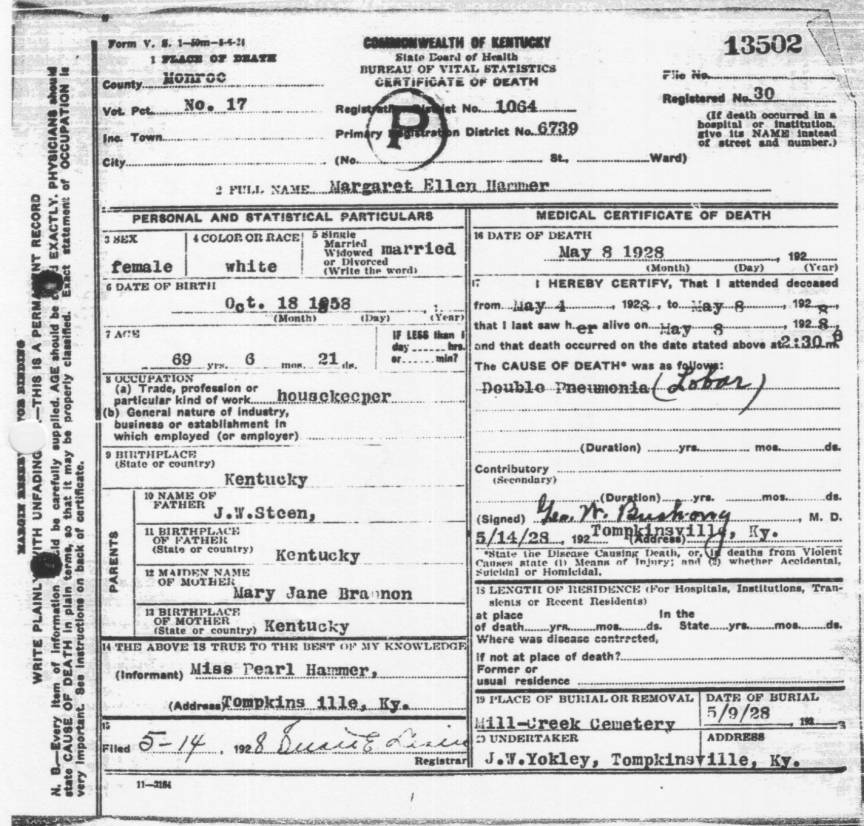 Form V. S. 1-50m-5-6-24
COMMONWEALTH OF KENTUCKY
State Board of Health
BUREAU OF VITAL STATISTICS
CERTIFICATE OF DEATH
13502
File No.
Registered No. 30
(If death occurred in a hospital or institution, give its NAME instead of street and number.)
1 PLACE OF DEATH
County Monroe
Vot. Pct. No. 17
Inc. Town
City
Registration District No. 1064
Primary Registration District No. 6739
P
(No. St., Ward)
2 FULL NAME Margaret Ellen Hammer
PERSONAL AND STATISTICAL PARTICULARS
3 SEX
female
4 COLOR OR RACE
white
5 Single
Married
Widowed
or Divorced
(Write the word)
married
6 DATE OF BIRTH
Oct. 18 1858
(Month) (Day) (Year)
7 AGE
69 yrs. 6 mos. 21 ds.
IF LESS than 1
day hrs.
or min?
8 OCCUPATION
(a) Trade, profession or
particular kind of work housekeeper
(b) General nature of industry,
business or establishment in
which employed (or employer)
9 BIRTHPLACE
(State or country)
Kentucky
PARENTS
10 NAME OF
FATHER
J.W.Steen,
11 BIRTHPLACE
OF FATHER
(State or country) Kentucky
12 MAIDEN NAME
OF MOTHER
Mary Jane Brannon
13 BIRTHPLACE
OF MOTHER
(State or country) Kentucky
14 THE ABOVE IS TRUE TO THE BEST OF MY KNOWLEDGE
(Informant) Miss Pearl Hammer,
(Address) Tompkins ille, Ky.
15
Filed 5-14, 1928
Registrar
11-3184
MEDICAL CERTIFICATE OF DEATH
16 DATE OF DEATH
May 8 1928, 192
(Month) (Day) (Year)
17 I HEREBY CERTIFY, That I attended deceased
from May 4, 1928, to May 8, 1928
that I last saw her alive on May 8, 1928,
and that death occurred on the date stated above at 2:30 m
The CAUSE OF DEATH* was as follows:
Double Pneumonia (Lobar)
(Duration) yrs. mos. ds.
Contributory
(Secondary)
(Duration) yrs. mos. ds.
(Signed) Geo. W. Bushong, M. D.
5/14/28, 192 (Address) Tompkinsville, Ky.
*State the Disease Causing Death, or, in deaths from Violent
Causes state (1) Means of Injury; and (2) whether Accidental,
Suicidal or Homicidal.
18 LENGTH OF RESIDENCE (For Hospitals, Institutions, Tran-
sients or Recent Residents)
at place In the
of death yrs. mos. ds. State yrs. mos. ds.
Where was disease contracted,
if not at place of death?
Former or
usual residence
19 PLACE OF BURIAL OR REMOVAL
Mill-Creek Cemetery
DATE OF BURIAL
5/9/28, 192
20 UNDERTAKER
ADDRESS
J.W.Yokley, Tompkinsville, Ky.
MARGIN RESERVED FOR BINDING
WRITE PLAINLY WITH UNFADING —THIS IS A PERMANENT RECORD
N. B.—Every item of information should be carefully supplied. AGE should be EXACTLY. PHYSICIANS should
state CAUSE OF DEATH in plain terms, so that it may be properly classified. Exact statement of OCCUPATION is
very important. See instructions on back of certificate.